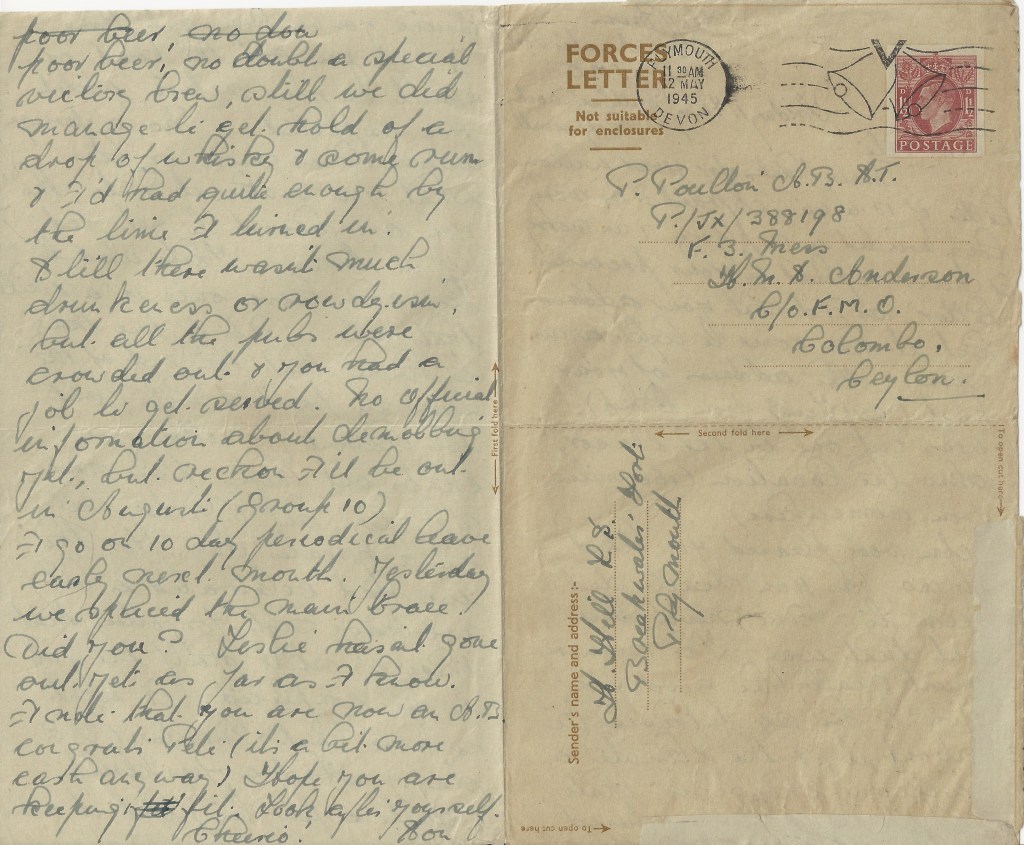 poor beer, no dou
poor beer, no doubt a special
victory brew, still we did
manage to get hold of a
drop of whisky & some rum
& I'd had quite enough by
the time I turned in.
Still there wasn't much
drunkeness or rowdyism,
but all the pubs were
crowded out & you had a
job to get served. No official
information about demobbing
yet, but reckon I'll be out
in August (Group 10)
I go on 10 day periodical leave
early next month. Yesterday
we spliced the main brace.
Did you? Leslie hasn't gone
out yet as far as I know.
I note that you are now an A.B.
congrats Pete (it's a bit more
cash anyway) I hope you are
keeping fit. Look after yourself.
Cheerio! Don
First fold here
FORCES
LETTER
Not suitable
for enclosures
PLYMOUTH
11 30 AM
12 MAY
1945
DEVON
V
POSTAGE
P. Poulton A.B. S.T.
P/JX/388198
F. 3. Mess
H.M.S. Anderson
C/o. F.M.O.
Colombo.
Ceylon.
Second fold here
To open cut here
Sender's name and address :-
Hill
Breakwater Fort
Plymouth
To open cut here